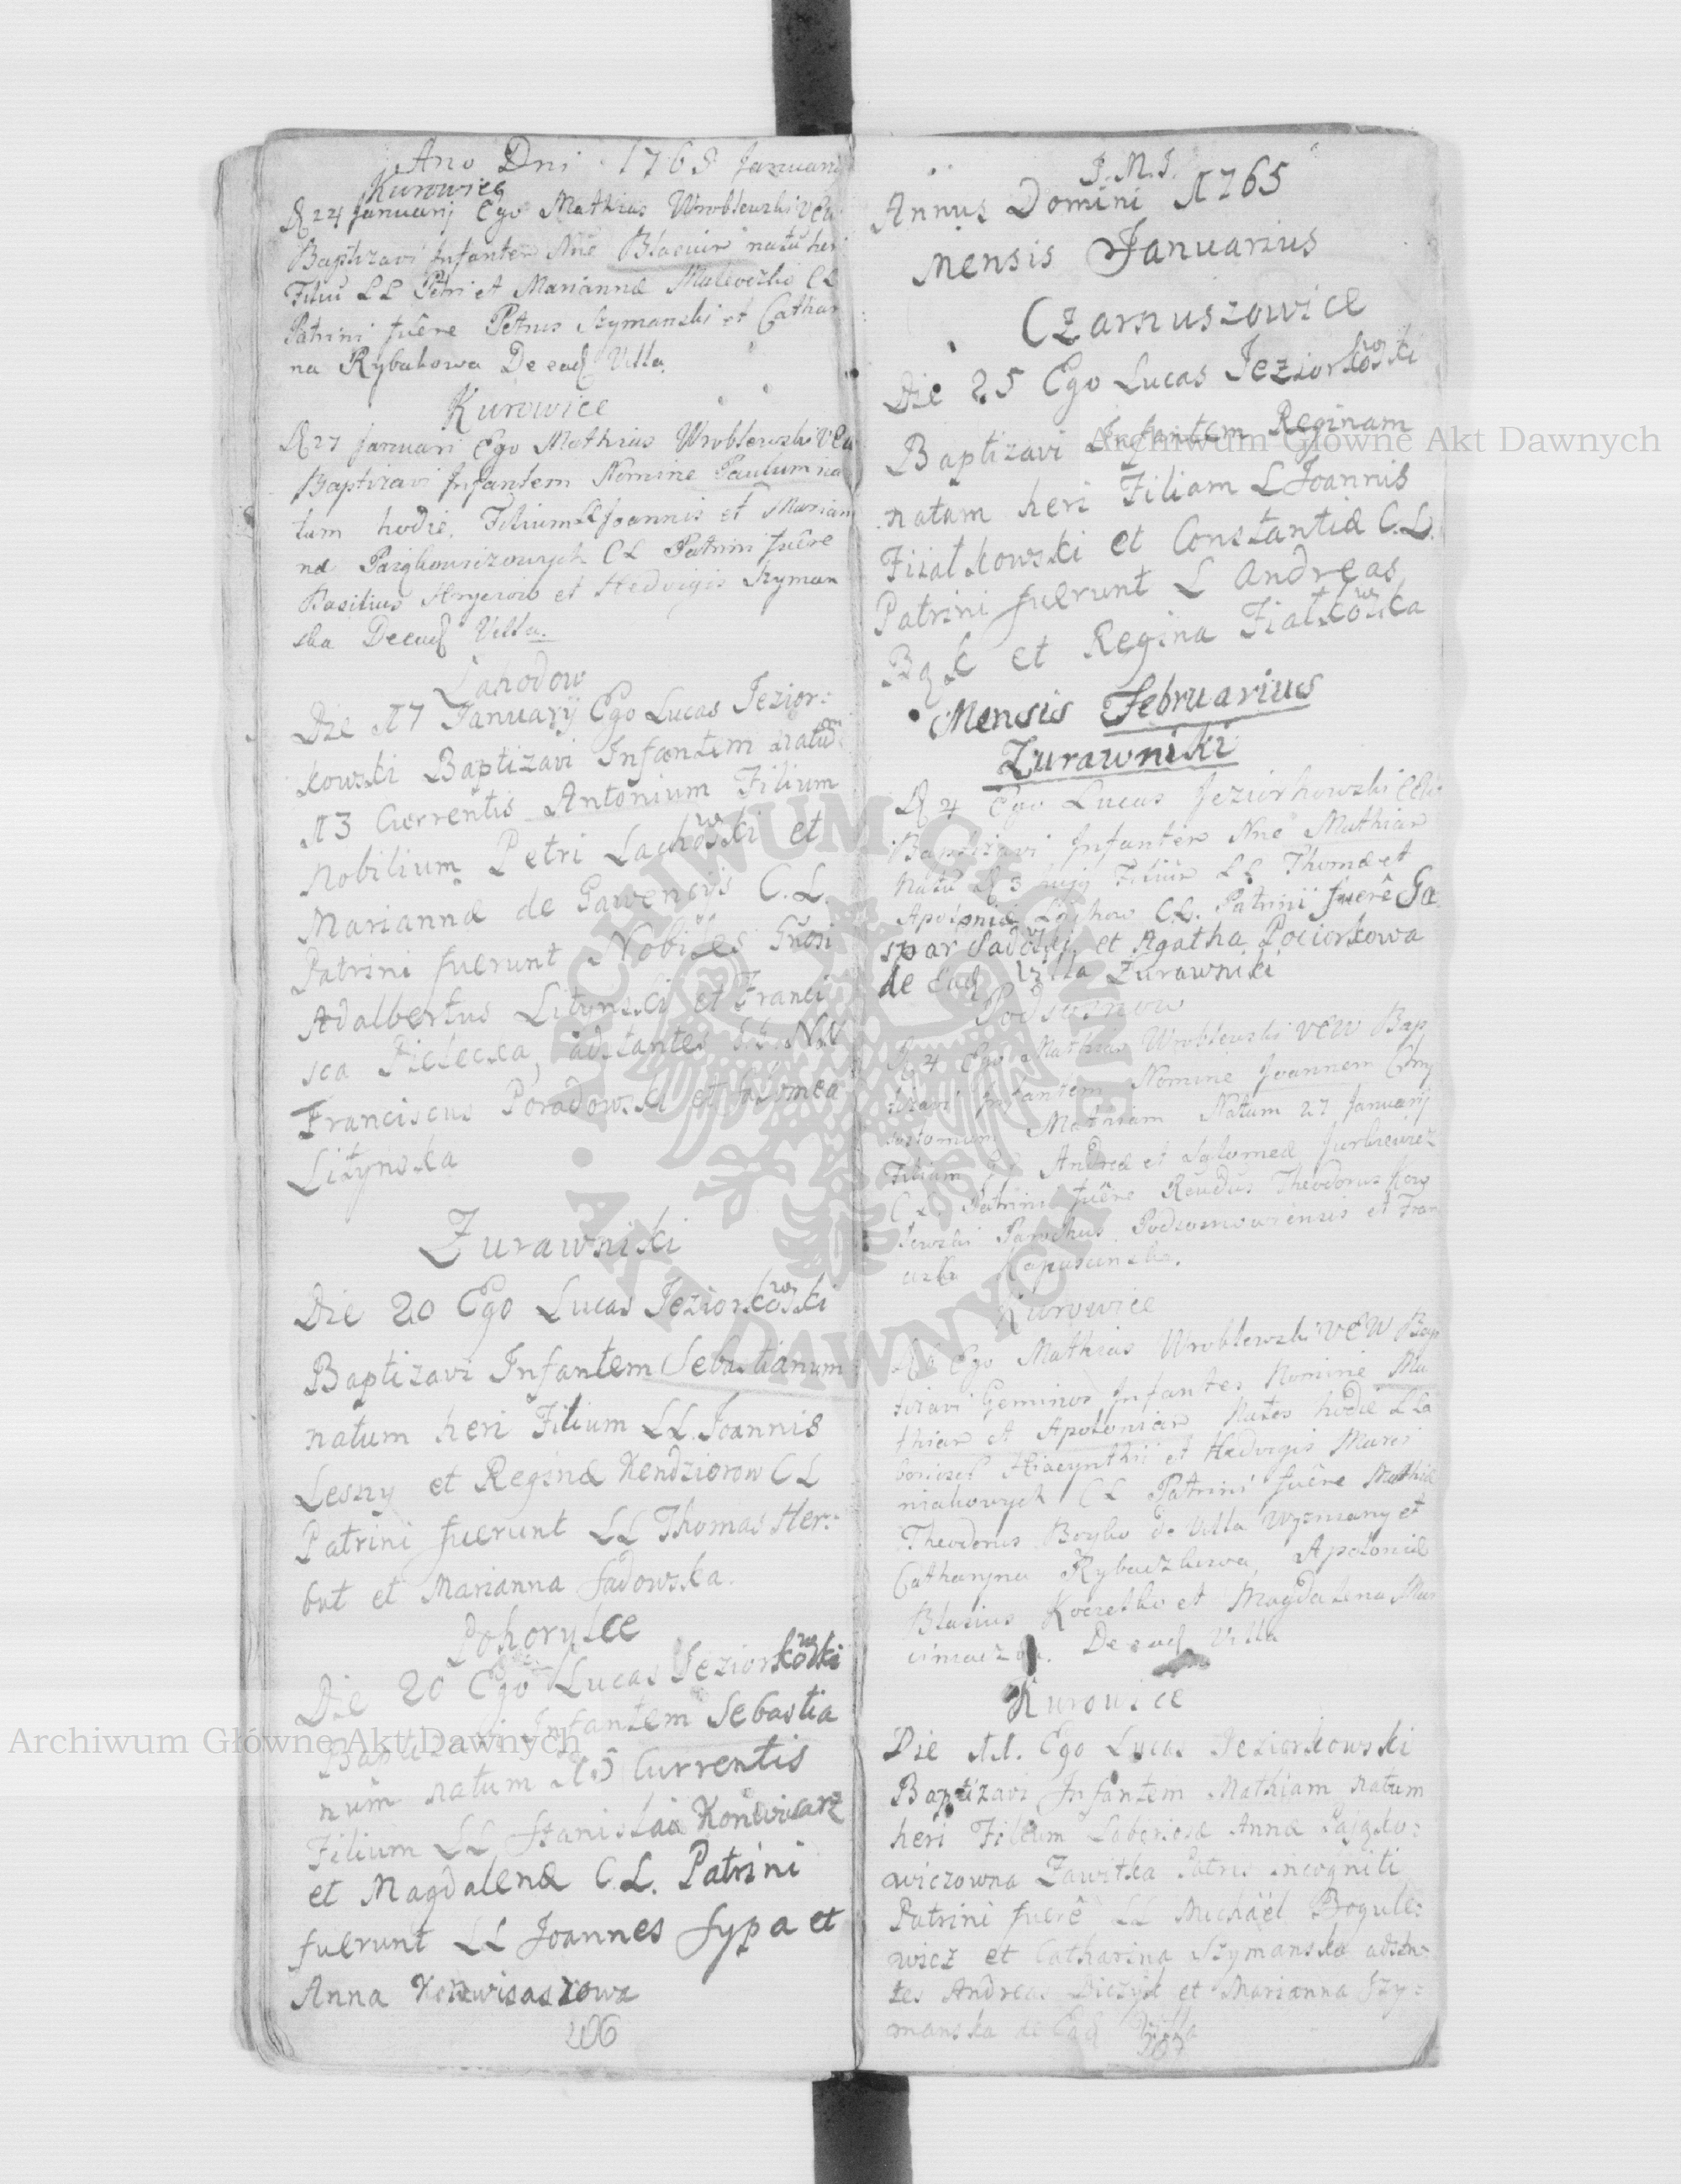 Ano Dni 1765 Januarij
Kurowice
D 24 Januarij Ego Mathias Wroblewski VEW
Baptizavi Infantem Nne Blasium natu heri
Filiu LL Petri et Marianna CL
Patrini fuêre Petrus Szymanski et Cathari
na Rybakowa De ead Villa.
Kurowice
D 27 Januari Ego Mathias Wroblewski VEW
Baptizavi Infantem Nomine Paulum na
tum hodie, Filium LL Joannis et Marian
næ CL Patrini fuêre
Basilius et Hedvigis Szyman
ska De ead Villa.
Lahodow
Die 17 Januarÿ Ego Lucas Jezior:
kowski Baptizavi Infantem natum
13 Currentis Antonium Filium
Nobilium Petri Lachowski et
Mariannæ de C.L.
Patrini fuerunt Nobiles Gnosi
Adalbertus Litynski et Franci
sca Pielecka, adstantes
Franciscus Poradowski et Salomea
Litynska
Zurawniki
Die 20 Ego Lucas Jeziorkowski
Baptizavi Infantem Sebastianum
natum heri Filium LL Joannis
Lesny et Reginæ Kendziorow CL
Patrini fuerunt LL Thomas Her:
but et Marianna Sadowska.
Pohorylce
Die 20 Ego Lucas Jeziorkowski
Baptizavi Infantem Sebastia
num natum 15 Currentis
Filium LL Stanislai Konwisarz
et Magdalenæ C.L. Patrini
fuerunt LL Joannes Sypa et
Anna Konwisaszowa
206
J.M.J.
Annus Domini 1765
Mensis Januarius
Czarnuszowice
Die 25 Ego Lucas Jeziorkowski
Baptizavi Infantem Reginam
natam heri Filiam L Joannis
Fiialkowski et Constantiæ C.L.
Patrini fuerunt L Andreas
Bąk et Regina Fialkowska
Mensis Februarius
Zurawniki
D 4 Ego Lucas Jeziorkowski
Baptizavi Infantem Nne Mathiam
Natu D 3 hujg Filium LL Thomæ et
Apoloniæ C.L. Patrini fuerê Ga
spar Sadowski et Agatha Pociorkowa
de Ead Villa Zurawniki
Podsosnow
D 4 Ego Mathias Wroblewski VEW Bap
tizavi Infantem Nomine Joannem Chry
sostomum Mathiam Natum 27 Januarij
Filium Andreæ et Salomeæ Jurkiewicz
C L. Patrini fuêre Rendus Theodorus
Parochus Podsosnoviensis et Fran
Kapuscinska.
Kurowice
Ego Mathias Wroblewski VEW Bap
tizavi Geminos Infantes Nomine Ma
thiam et Apoloniam Natos hodie LLa
boriosor Hiacynthii et Hedvigis Marci
niakowych CL Patrini fuêre Mathiæ
Theodorus Boyko de Villa Wyzniany et
Catharina Rybaczkowa, Apoloniæ
Blasius et Magdalena Mar
De ead Villa
Kurowice
Die 11. Ego Lucas Jeziorkowski
Baptizavi Infantem Mathiam natum
heri Filium Laboriosæ Annæ Pająko:
wiczowna Zawitka Patris incogniti
Patrini fuerê LL Michaël Bogule:
wicz et Catharina Szymanska adstan:
tes Andreas et Marianna Szy:
manska de Ead Villa
207
Archiwum Główne Akt Dawnych
Archiwum Główne Akt Dawnych
ARCHIWUM GŁÓWNE
AKT DAWNYCH